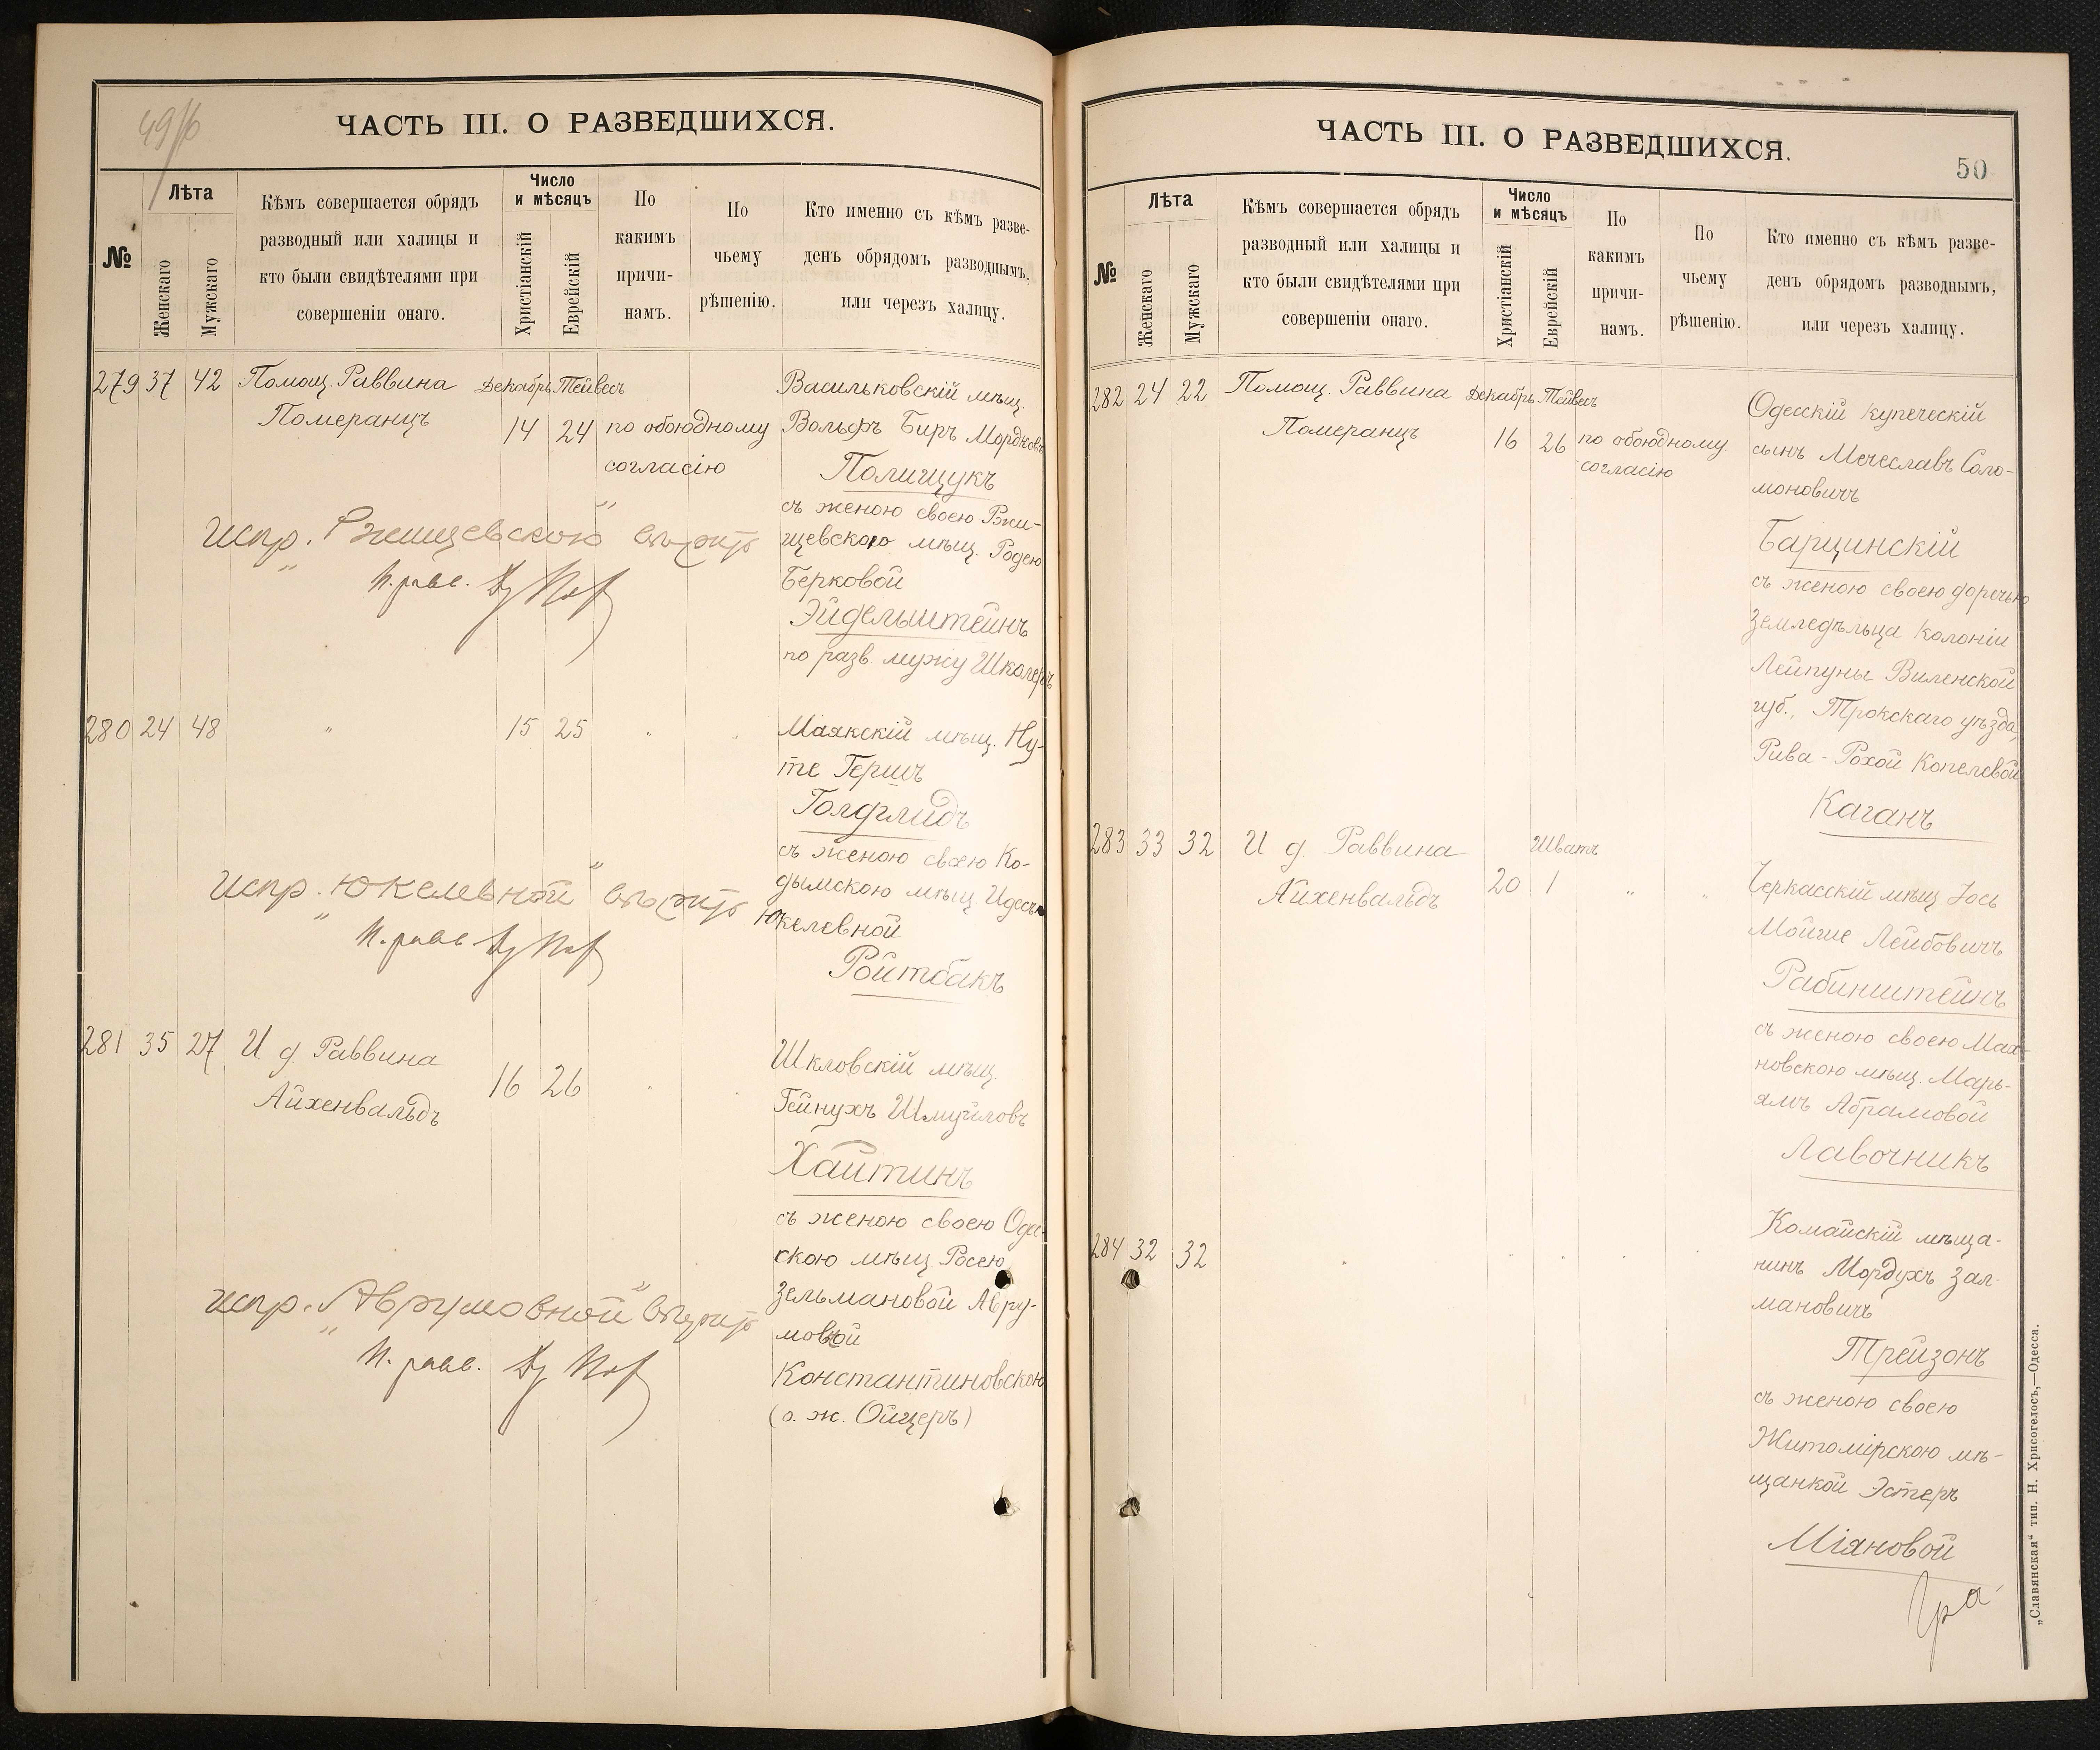 49/б
ЧАСТЬ III. О РАЗВЕДШИХСЯ.
№
Лѣта
Женскаго
Мужскаго
Кѣмъ совершается обрядъ
разводный или халицы и
кто были свидѣтелями при
совершеніи онаго.
Число
и мѣсяцъ
Христіанскій
Еврейскій
По
какимъ
причи-
намъ.
По
чьему
рѣшенію.
Кто именно съ кѣмъ разве-
денъ обрядомъ разводнымъ,
или черезъ халицу.
279 37 42 Помощ. Раввина Декабрь Тейвесъ Васильковскій мѣщ.
Померанцъ 14 24 по обоюдному Вольфъ Биръ Мордковъ
согласію Полищукъ
съ женою своею Ржи-
испр. „Ржищевскою“ вѣрить щевскою мѣщ. Родею
п. равв. Берковой
Эйдельштейнъ
по разв. мужу Школеръ
280 24 48 " 15 25 " " Маякскій мѣщ. Ну-
те Гершъ
Голдглидъ
съ женою своею Ко-
дымскою мѣщ. Идесъ
испр. „Юкелевной“ вѣрить Юкелевной
п. равв. Ройтбакъ
281 35 27 И д. Раввина 16 26 " Шкловскій мѣщ.
Айхенвальдъ Гейнухъ Шмуйловъ
Хайтинъ
съ женою своею Одес-
скою мѣщ. Росею
испр. „Аврумовной“ вѣрить Зельмановой Авру-
п. равв. мовой
Константиновскою
(о. ж. Ойцеръ)
ЧАСТЬ III. О РАЗВЕДШИХСЯ.
50
№
Лѣта
Женскаго
Мужскаго
Кѣмъ совершается обрядъ
разводный или халицы и
кто были свидѣтелями при
совершеніи онаго.
Число
и мѣсяцъ
Христіанскій
Еврейскій
По
какимъ
причи-
намъ.
По
чьему
рѣшенію.
Кто именно съ кѣмъ разве-
денъ обрядомъ разводнымъ,
или черезъ халицу.
282 24 22 Помощ. Раввина Декабрь Тейвесъ Одесскій купеческій
Померанцъ 16 26 по обоюдному сынъ Мечеславъ Соло-
согласію моновичъ
Барцинскій
съ женою своею дочерью
земледѣльца колоніи
Лейпуны Виленской
губ., Трокскаго уѣзда,
Рива-Рохой Копелевой
Каганъ
283 33 32 И д. Раввина Шватъ
Айхенвальдъ 20 1 " " Черкасскій мѣщ. Іось
Мойше Лейбовичъ
Рабинштейнъ
съ женою своею Мах-
новскою мѣщ. Марь-
ямъ Абрамовой
Лавочникъ
284 32 32 " " " " " Комайскій мѣща-
нинъ Мордухъ Зал-
мановичъ
Трейзонъ
съ женою своею
Житомірскою мѣ-
щанкой Эстеръ
Міяновой
„Славянская“ тип. Н. Хрисогелосъ,—Одесса.